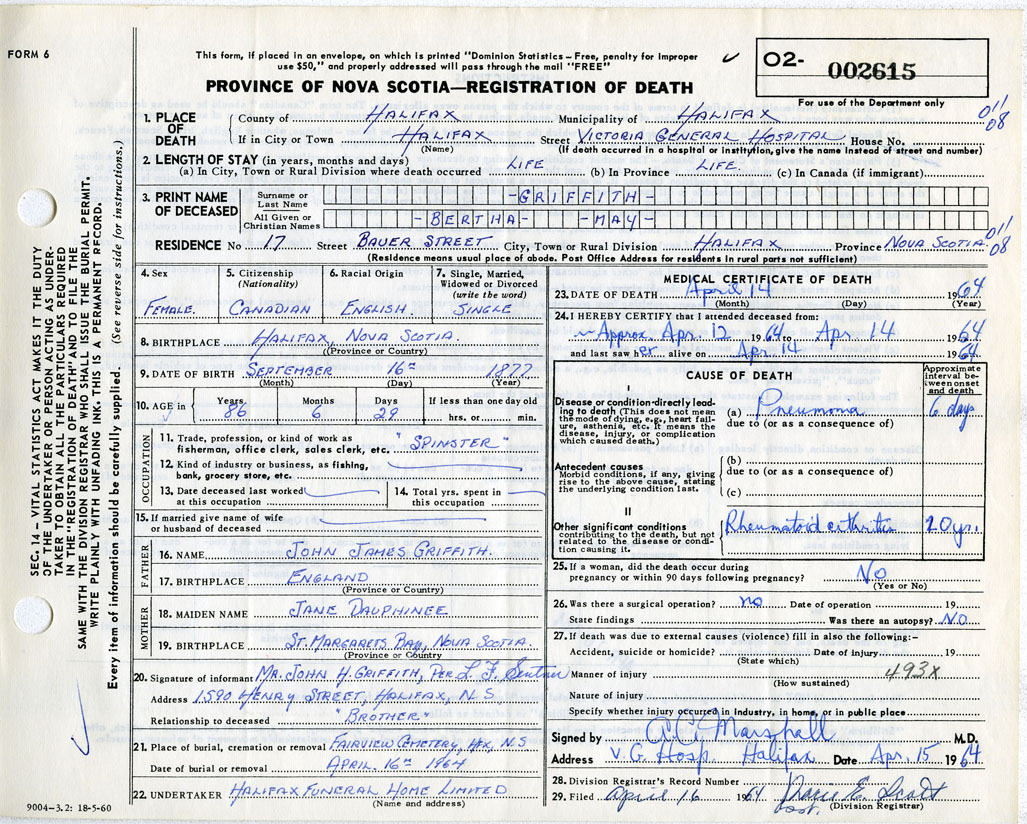 FORM 6
This form, if placed in an envelope, on which is printed "Dominion Statistics – Free, penalty for improper
use $50," and properly addressed will pass through the mail "FREE"
PROVINCE OF NOVA SCOTIA—REGISTRATION OF DEATH
02- 002615
For use of the Department only
011
08
1. PLACE OF DEATH
County of HALIFAX Municipality of HALIFAX
If in City or Town HALIFAX Street VICTORIA GENERAL HOSPITAL House No.
(Name) (If death occurred in a hospital or institution, give the name instead of street and number)
2. LENGTH OF STAY (in years, months and days)
(a) In City, Town or Rural Division where death occurred LIFE (b) In Province LIFE. (c) In Canada (if immigrant)
3. PRINT NAME OF DECEASED
Surname or Last Name -GRIFFITH-
All Given or Christian Names -BERTHA- -MAY-
011
08
RESIDENCE No 17 Street BAUER STREET City, Town or Rural Division HALIFAX Province NOVA SCOTIA.
(Residence means usual place of abode. Post Office Address for residents in rural parts not sufficient)
4. Sex
FEMALE.
5. Citizenship
(Nationality)
CANADIAN
6. Racial Origin
ENGLISH.
7. Single, Married, Widowed or Divorced
(write the word)
SINGLE
8. BIRTHPLACE HALIFAX, NOVA SCOTIA.
(Province or Country)
9. DATE OF BIRTH SEPTEMBER 16TH 1877
(Month) (Day) (Year)
10. AGE in
Years 86
Months 6
Days 29
If less than one day old
hrs. or min.
OCCUPATION
11. Trade, profession, or kind of work as
fisherman, office clerk, sales clerk, etc. "SPINSTER"
12. Kind of industry or business, as fishing,
bank, grocery store, etc.
13. Date deceased last worked
at this occupation
14. Total yrs. spent in
this occupation
15. If married give name of wife
or husband of deceased
FATHER
16. NAME JOHN JAMES GRIFFITH.
17. BIRTHPLACE ENGLAND
(Province or Country)
MOTHER
18. MAIDEN NAME JANE DAUPHINEE
19. BIRTHPLACE ST. MARGARETS BAY, NOVA SCOTIA.
(Province or Country)
20. Signature of informant MR. JOHN H. GRIFFITH, PER L. F.
Address 1590 HENRY STREET, HALIFAX, N.S
Relationship to deceased "BROTHER"
21. Place of burial, cremation or removal FAIRVIEW CEMETERY, HFX, N.S
Date of burial or removal APRIL. 16TH 1964
22. UNDERTAKER HALIFAX FUNERAL HOME LIMITED
(Name and address)
MEDICAL CERTIFICATE OF DEATH
23. DATE OF DEATH April 14 1964
(Month) (Day) (Year)
24. I HEREBY CERTIFY that I attended deceased from:
Approx. Apr. 12 1964 to Apr. 14 1964
and last saw her alive on Apr. 14 1964
CAUSE OF DEATH
Approximate interval between onset and death
I
Disease or condition directly leading to death (This does not mean
the mode of dying, e.g., heart failure, asthenia, etc. It means the
disease, injury, or complication
which caused death.)
(a) Pneumonia 6 days
due to (or as a consequence of)
Antecedent causes
Morbid conditions, if any, giving
rise to the above cause, stating
the underlying condition last.
(b)
due to (or as a consequence of)
(c)
II
Other significant conditions
contributing to the death, but not
related to the disease or condition causing it.
Rheumatoid arthritis 20 yrs.
25. If a woman, did the death occur during
pregnancy or within 90 days following pregnancy? No
(Yes or No)
26. Was there a surgical operation? no Date of operation 19
State findings Was there an autopsy? No.
27. If death was due to external causes (violence) fill in also the following:–
Accident, suicide or homicide? Date of injury 19
(State which)
Manner of injury 493X
(How sustained)
Nature of injury
Specify whether injury occurred in industry, in home, or in public place
Signed by A. C. Marshall M.D.
Address V. G. Hosp. Halifax Date Apr. 15 1964
28. Division Registrar's Record Number
29. Filed April 16 1964 E. Scott
(Division Registrar)
SEC. 14 – VITAL STATISTICS ACT MAKES IT THE DUTY
OF THE UNDERTAKER OR PERSON ACTING AS UNDER-
TAKER TO OBTAIN ALL THE PARTICULARS REQUIRED
IN THE "REGISTRATION OF DEATH" AND TO FILE THE
SAME WITH THE DIVISION REGISTRAR WHO SHALL ISSUE THE BURIAL PERMIT.
WRITE PLAINLY WITH UNFADING INK. THIS IS A PERMANENT RECORD.
Every item of information should be carefully supplied. (See reverse side for instructions.)
9004–3.2: 18-5-60